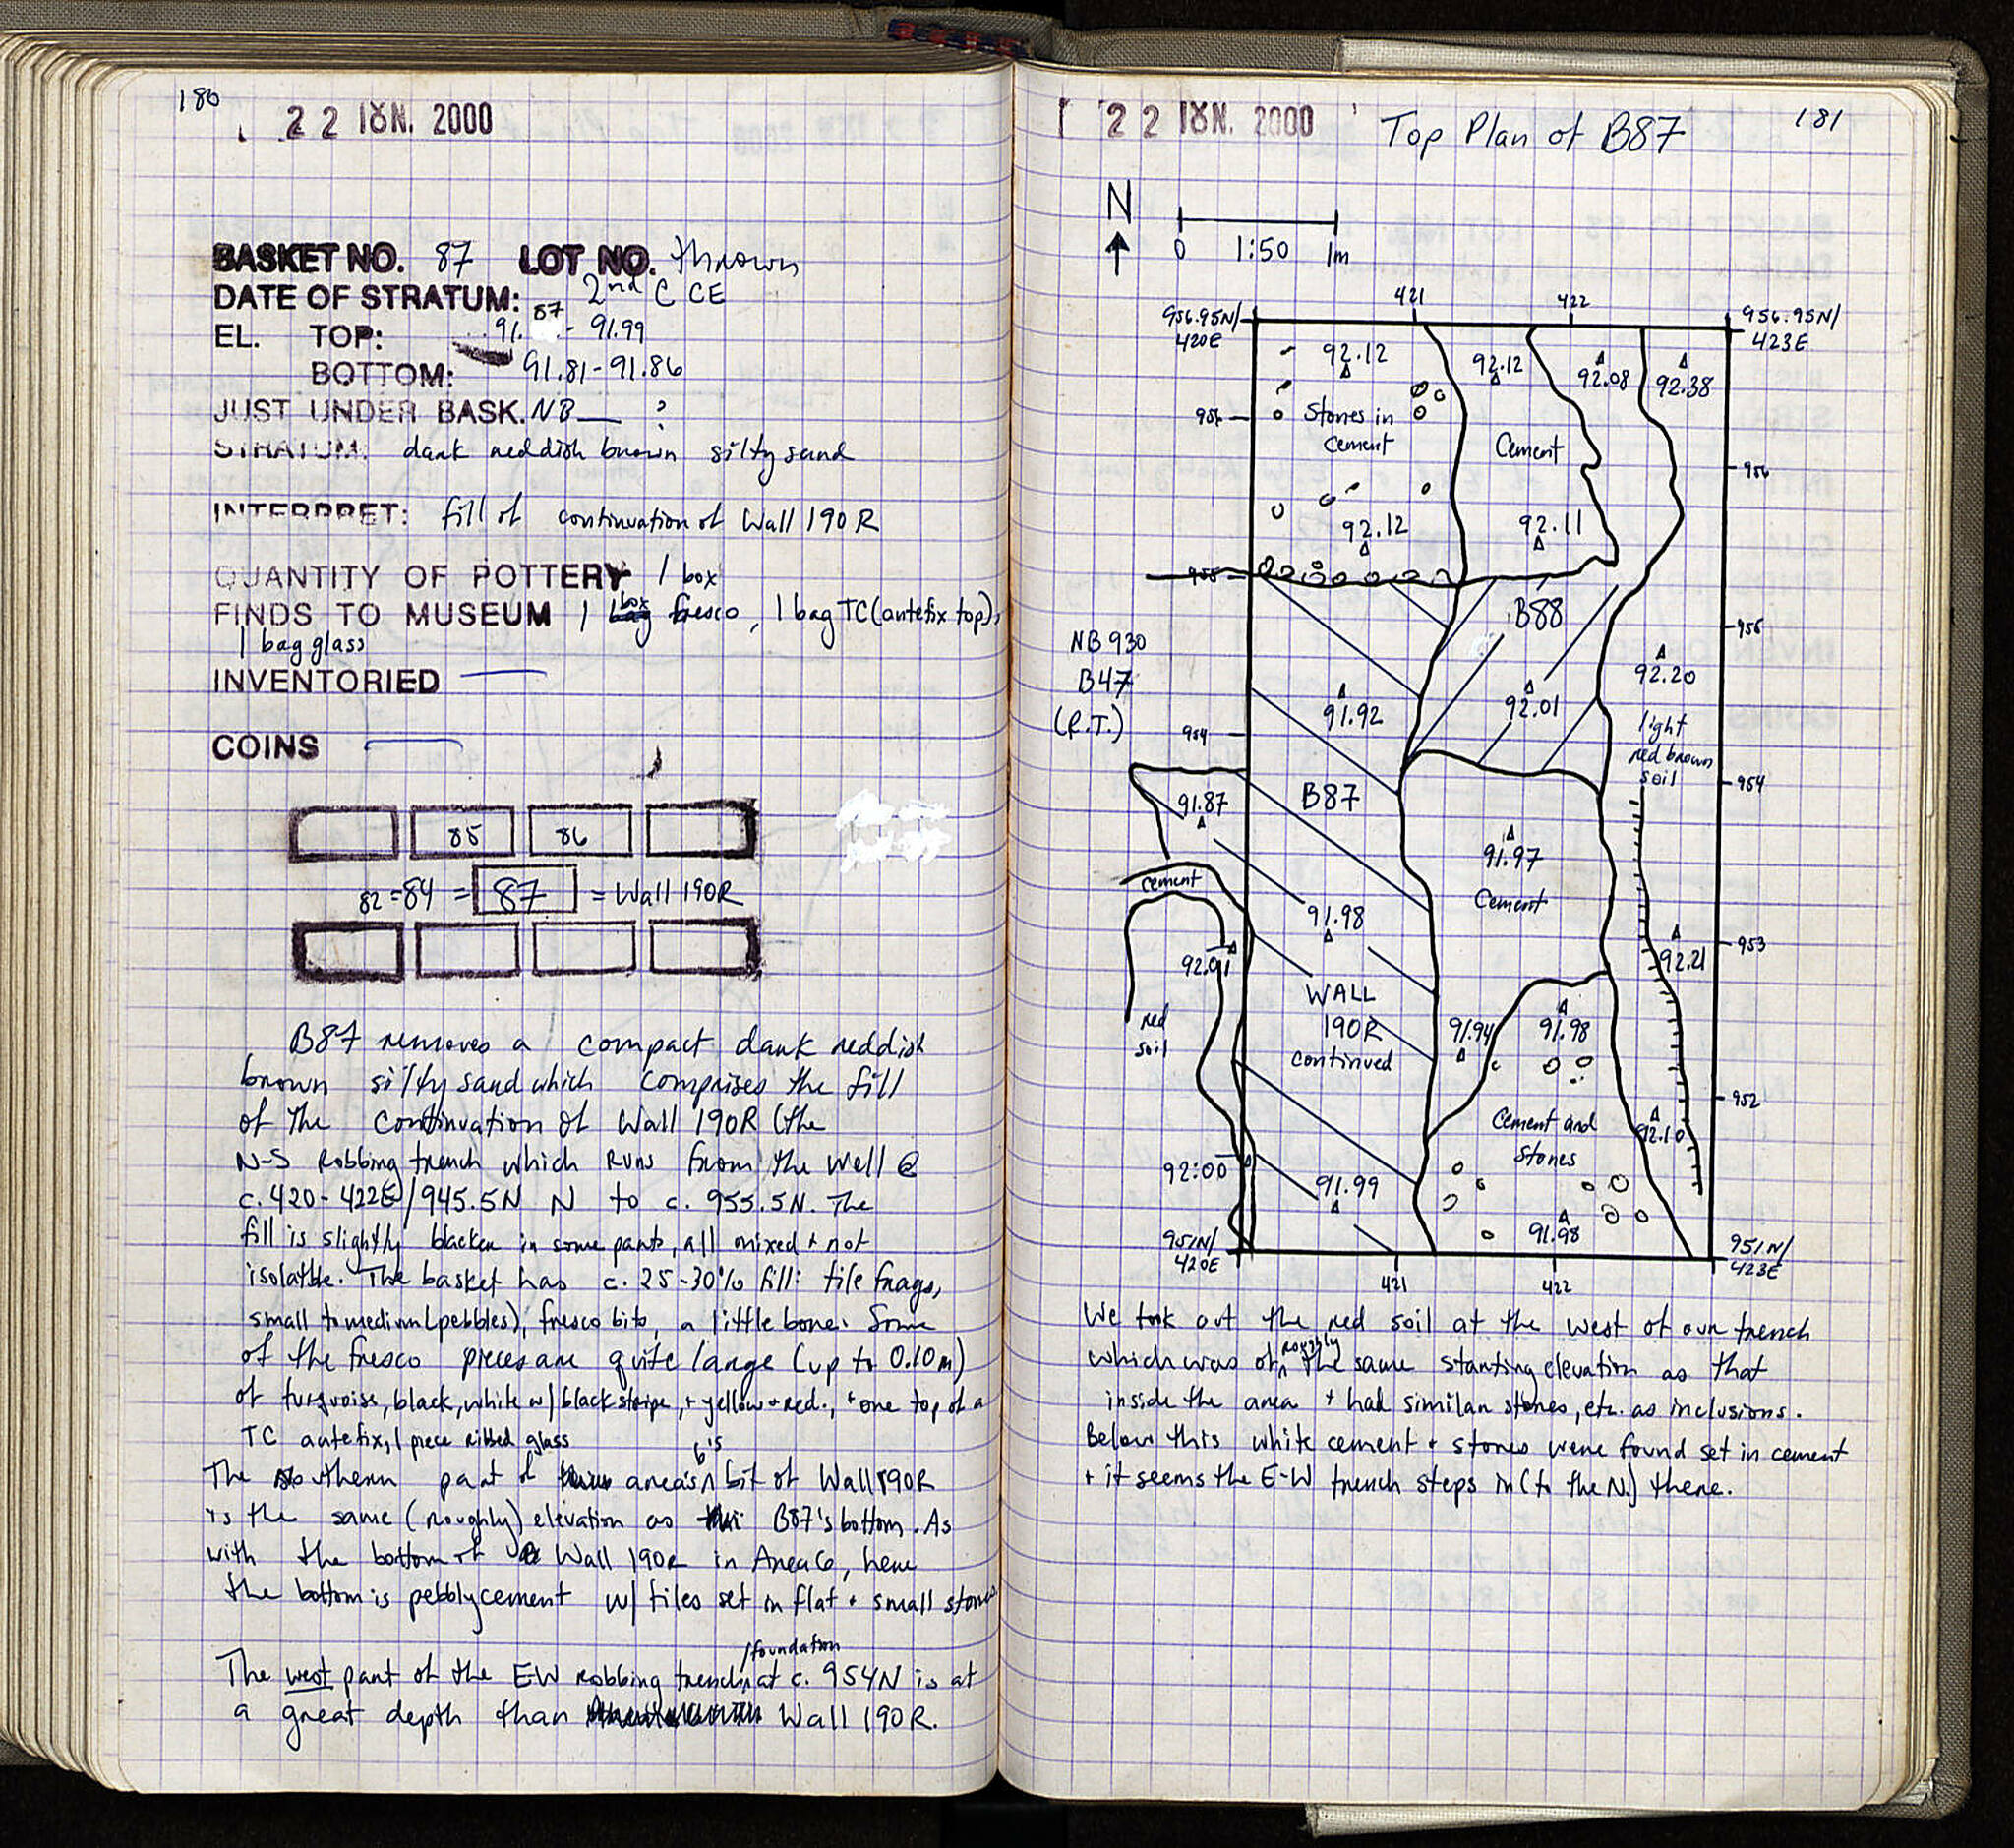 180
22 IOYN. 2000
BASKET NO. 87 LOT NO. thrown
DATE OF STRATUM: 2nd C CE
EL. TOP: 91.87 - 91.99
BOTTOM: 91.81-91.86
JUST UNDER BASK. NB — ?
STRATUM: dark reddish brown silty sand
INTERPRET: fill of continuation of Wall 190R
QUANTITY OF POTTERY 1 box
FINDS TO MUSEUM 1 box fresco, 1 bag TC (antefix top),
1 bag glass
INVENTORIED —
COINS —
85 86
82=84 = 87 = Wall 190R
B87 removes a compact dark reddish
brown silty sand which comprises the fill
of the continuation of Wall 190R (the
N-S Robbing trench which runs from the well @
c. 420-422E/945.5N N to c. 955.5N. The
fill is slightly blacker in some parts, all mixed + not
isolatble. The basket has c. 25-30% fill: tile frags,
small to medium (pebbles), fresco bits, a little bone. Some
of the fresco pieces are quite large (up to 0.10m)
of turquoise, black, white w/ black stripe, + yellow + red., + one top of a
TC antefix, 1 piece ribbed glass
The southern part of area 6's bit of Wall 190R
is the same (roughly) elevation as B87's bottom. As
with the bottom of Wall 190R in Area 6, here
the bottom is pebbly cement w/ tiles set in flat + small stones.
The west part of the EW robbing trench /foundation at c. 954N is at
a great depth than Wall 190R.
22 IOYN. 2000
Top Plan of B87
181
N
0 1:50 1m
421 422
956.95N/ 420E
956.95N/ 423E
92.12 92.12 92.08 92.38
956
Stones in cement
Cement
956
92.12 92.11
955
B88
NB 930
B47
(R.T.)
955
92.20
91.92 92.01
954
light red brown soil
954
91.87
B87
91.97
Cement
cement
91.98
953
92.01
92.21
WALL
190R
continued
red soil
91.94 91.98
952
Cement and Stones
92.10
92.00
91.99
91.98
951N/ 420E
951N/ 423E
421 422
We took out the red soil at the west of our trench
which was of roughly the same starting elevation as that
inside the area + had similar stones, etc. as inclusions.
Below this white cement + stones were found set in cement
+ it seems the E-W trench steps in (to the N.) there.